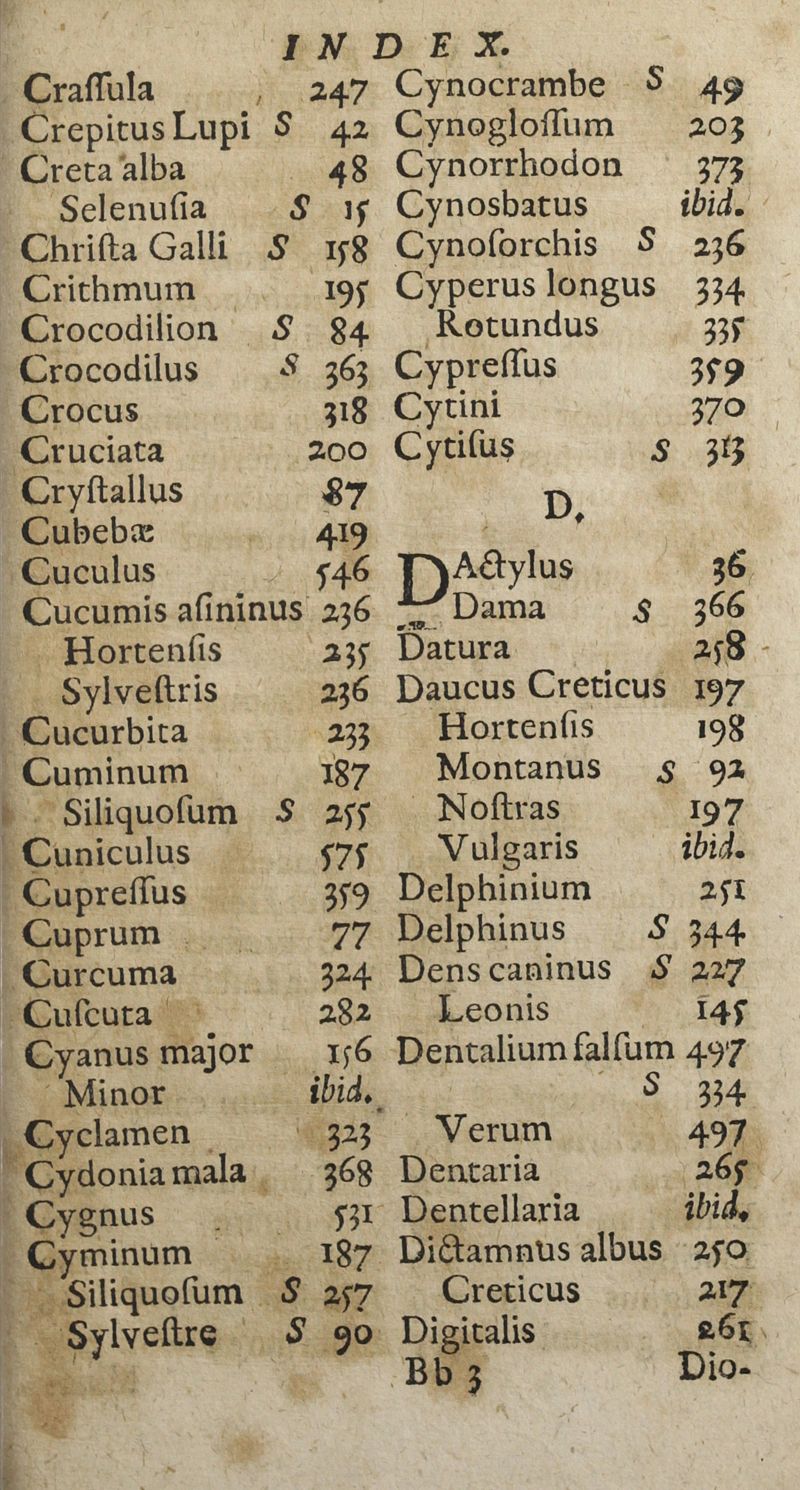 INDEX.
Craſſula 247
Crepitus Lupi S 42
Creta alba 48
Selenuſia S 15
Chriſta Galli S 158
Crithmum 195
Crocodilion S 84
Crocodilus S 363
Crocus 318
Cruciata 200
Cryſtallus 87
Cubebæ 419
Cuculus 546
Cucumis aſininus 236
Hortenſis 235
Sylveſtris 236
Cucurbita 233
Cuminum 187
Siliquoſum S 255
Cuniculus 575
Cupreſſus 359
Cuprum 77
Curcuma 324
Cuſcuta 282
Cyanus major 156
Minor ibid.
Cyclamen 323
Cydonia mala 368
Cygnus 531
Cyminum 187
Siliquoſum S 257
Sylveſtre S 90
Cynocrambe S 49
Cynogloſſum 203
Cynorrhodon 373
Cynosbatus ibid.
Cynoſorchis S 236
Cyperus longus 334
Rotundus 335
Cypreſſus 359
Cytini 370
Cytiſus S 313
D.
DActylus 36
Dama S 366
Datura 258
Daucus Creticus 197
Hortenſis 198
Montanus S 92
Noſtras 197
Vulgaris ibid.
Delphinium 251
Delphinus S 344
Dens caninus S 227
Leonis 145
Dentalium falſum 497
S 334
Verum 497
Dentaria 265
Dentellaria ibid.
Dictamnus albus 250
Creticus 217
Digitalis 261
Bb 3 Dio-